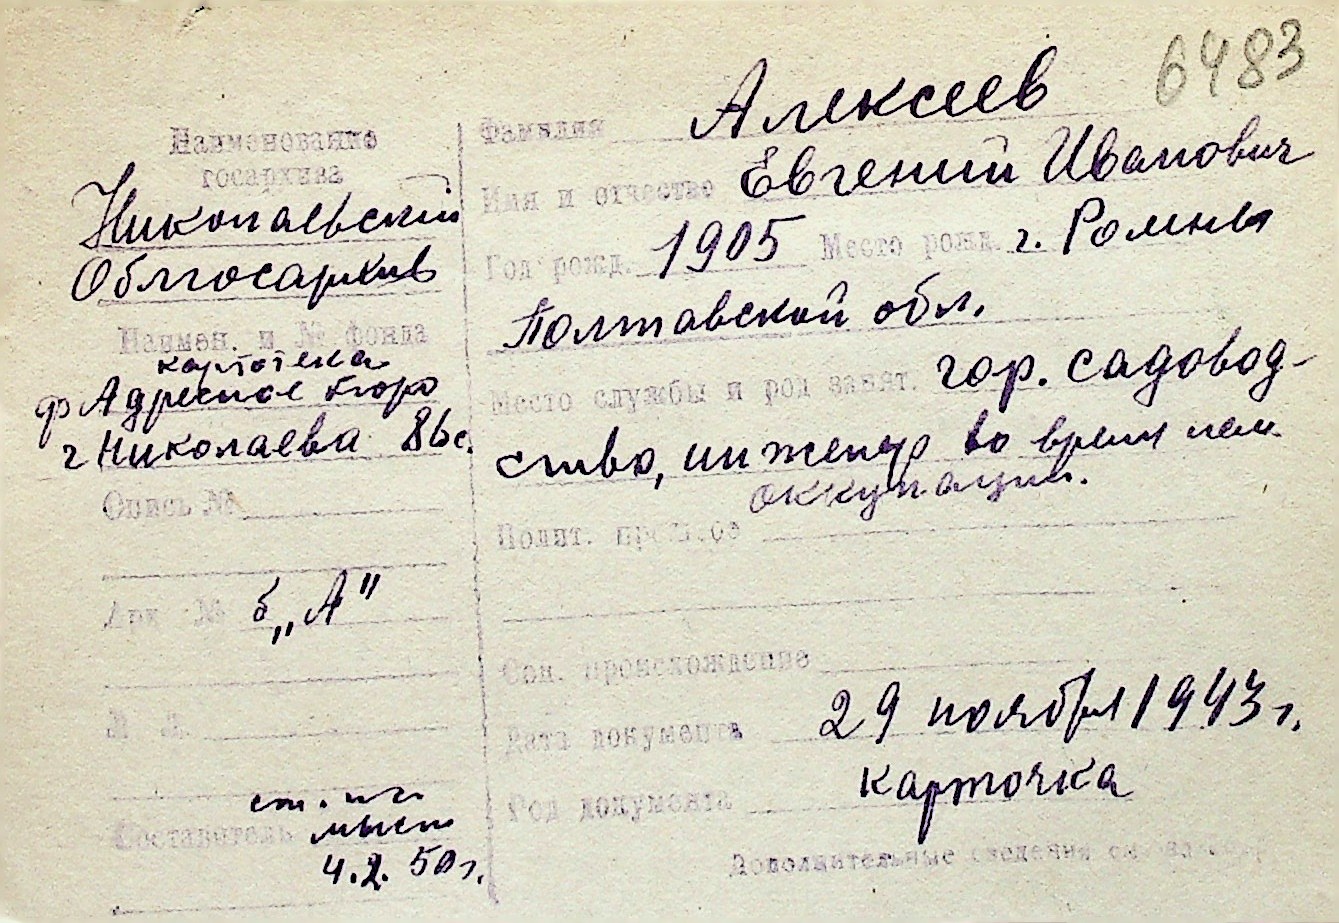 6483
Наименование
госархива
Николаевский
Облгосархив
Наимен. и № фонда
картотека
ф Адресное бюро
г Николаева 86с.
Опись №
Арх №
б „А"
Л. л.
Составитель
4.2.50г.
Фамилия Алексеев
Имя и отчество Евгений Иванович
Год рожд. 1905 Место рожд. г. Ромны
Полтавской обл.
Место службы и род занят. гор. садовод-
ство, инженер во время нем.
оккупации.
Полит. прошлое
Соц. происхождение
Дата документа 29 ноября 1943г.
Род документа карточка
Дополнительные сведения см. на